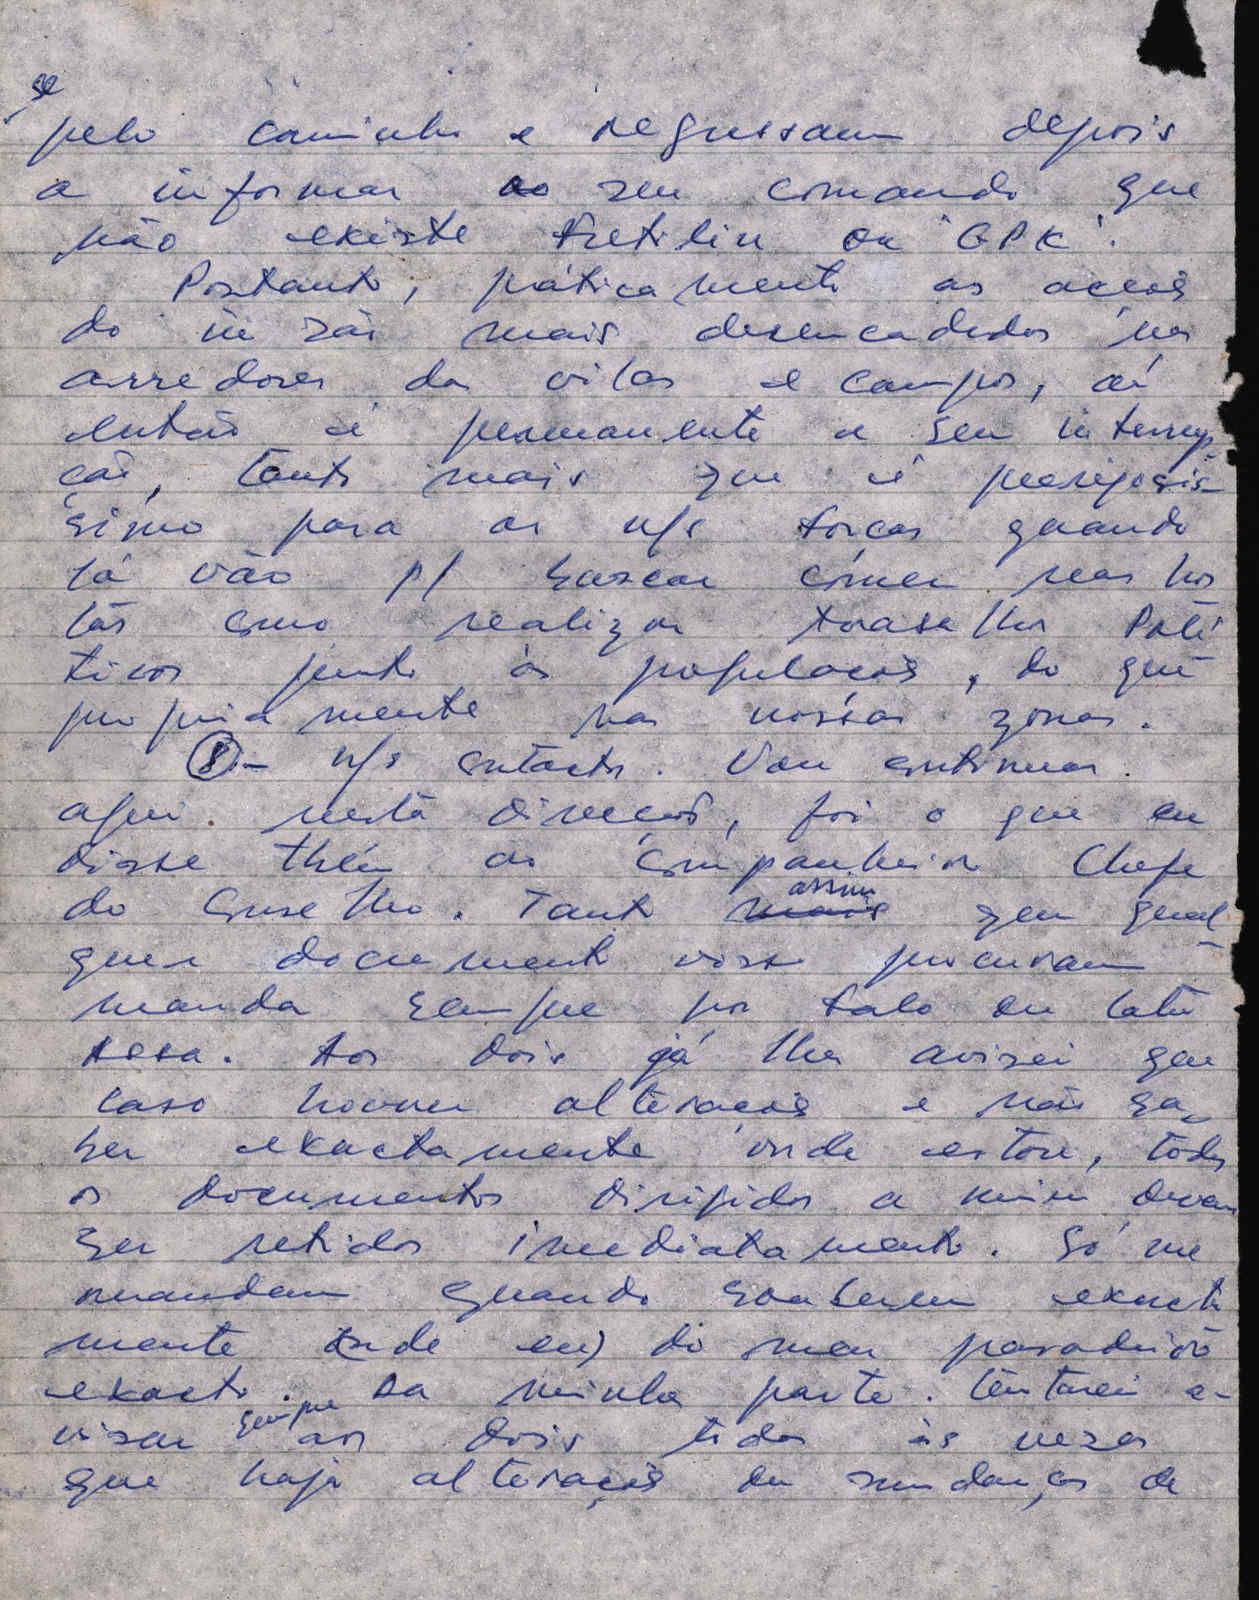 se
pelo caminho e regressam depois
a informar ao seu comando que
não existe Fretilin ou "GPK".
Portanto, práticamente as acções
do ini são mais desencadeadas nos
arredores da vilas e campos, aí
então é permanente a seu interrup-
ção, tanto mais que é perigosis-
simo para as n/s forças quando
lá vão p/ buscar comer nas hor
tas como realizar trabalhos Polí
ticos junto às populações, do que
propriamente nas nossas zonas.
8.- n/s contacto. Vou continuar
aqui nesta direcção, foi o que eu
disse tbém ao companheiro Chefe
do Conselho. Tanto assim que qual
quer documento vosso procuram
manda sempre por Falo ou
. Aos dois já lhes avisei que
caso houver alterações e não sa-
ber exactamente onde estou, todos
os documentos dirigidos a mim devam
ser retidos imediatamente. Só me
mandam quando souberem exacta
mente onde eu) do meu paradeiro
exacto. Da minha parte. tentarei a-
visar sempre aos dois todas às vezes
que haja alterações ou mudanças de